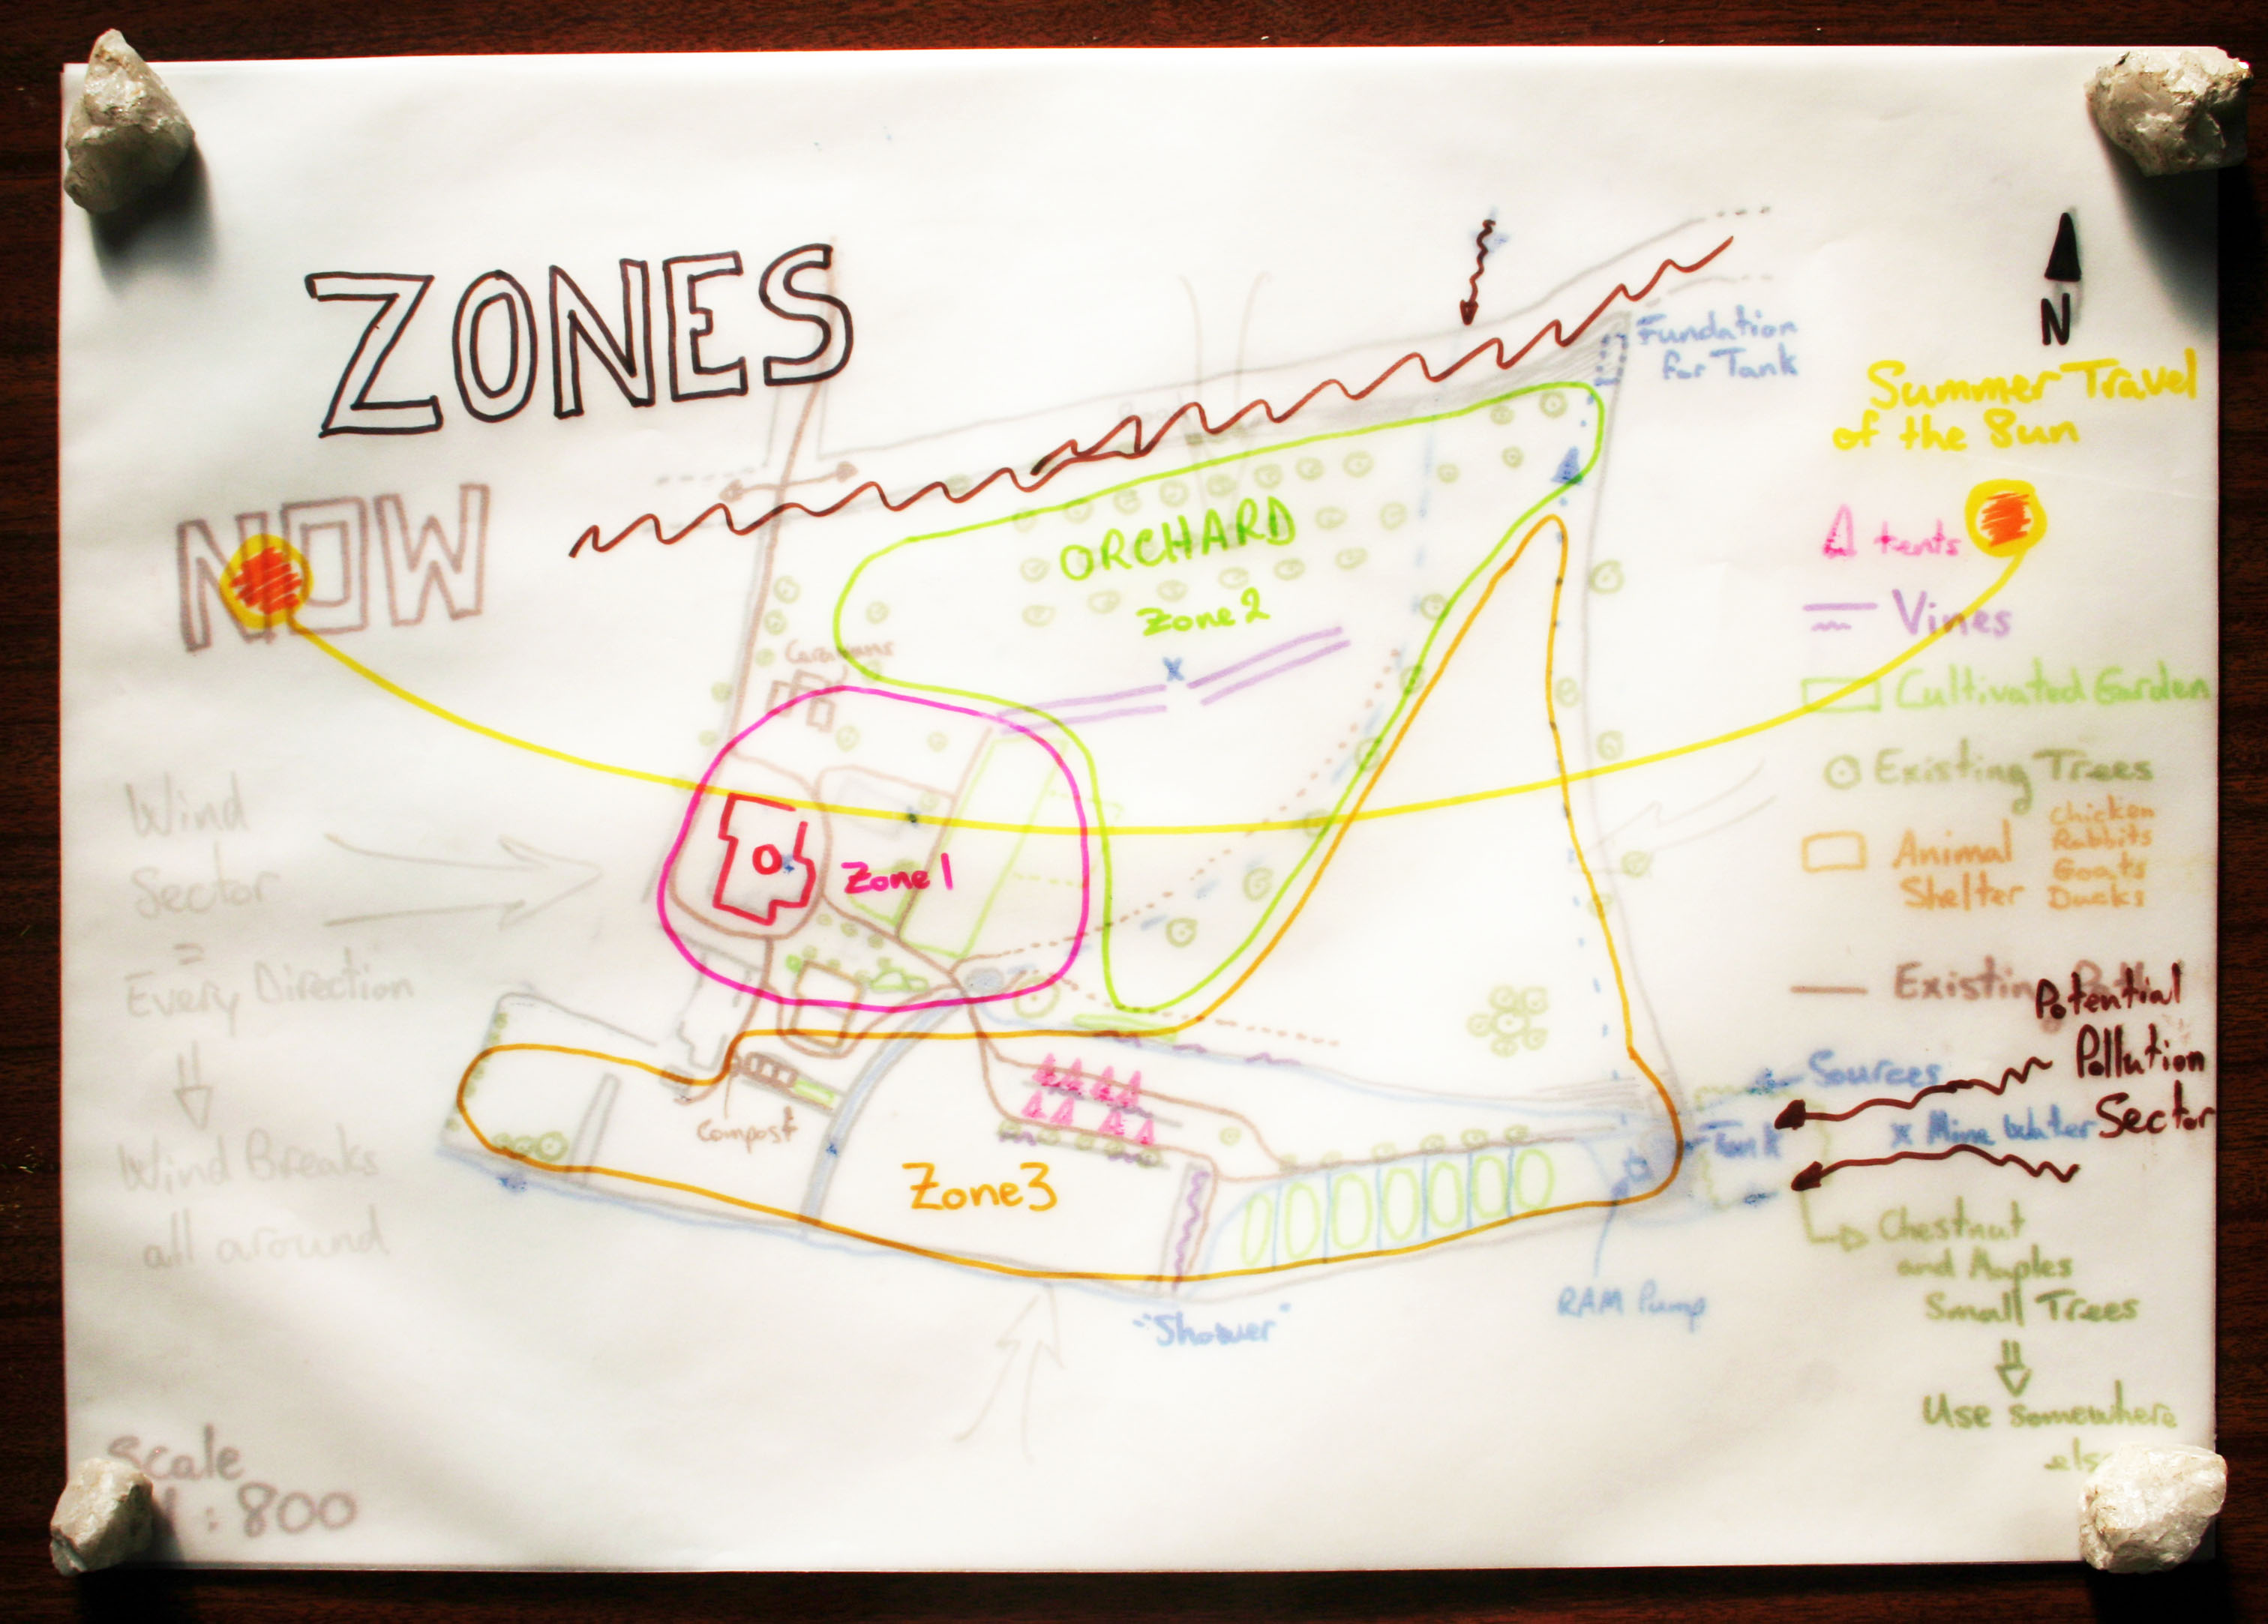 ZONES
NOW
N
Fundation
for Tank
Summer Travel
of the Sun
tents
Vines
Cultivated Garden
Existing Trees
Animal
Shelter
Chicken
Rabbits
Goats
Ducks
Existing
Potential
Pollution
Sector
Sources
x Mine Water
Tank
Chestnut
and Maples
Small Trees
Use somewhere
ORCHARD
Zone2
x
Caravans
Zone1
O
Compost
Zone3
"Shower"
RAM Pump
Wind
Sector
=
Every Direction
Wind Breaks
all around
Scale
1:800